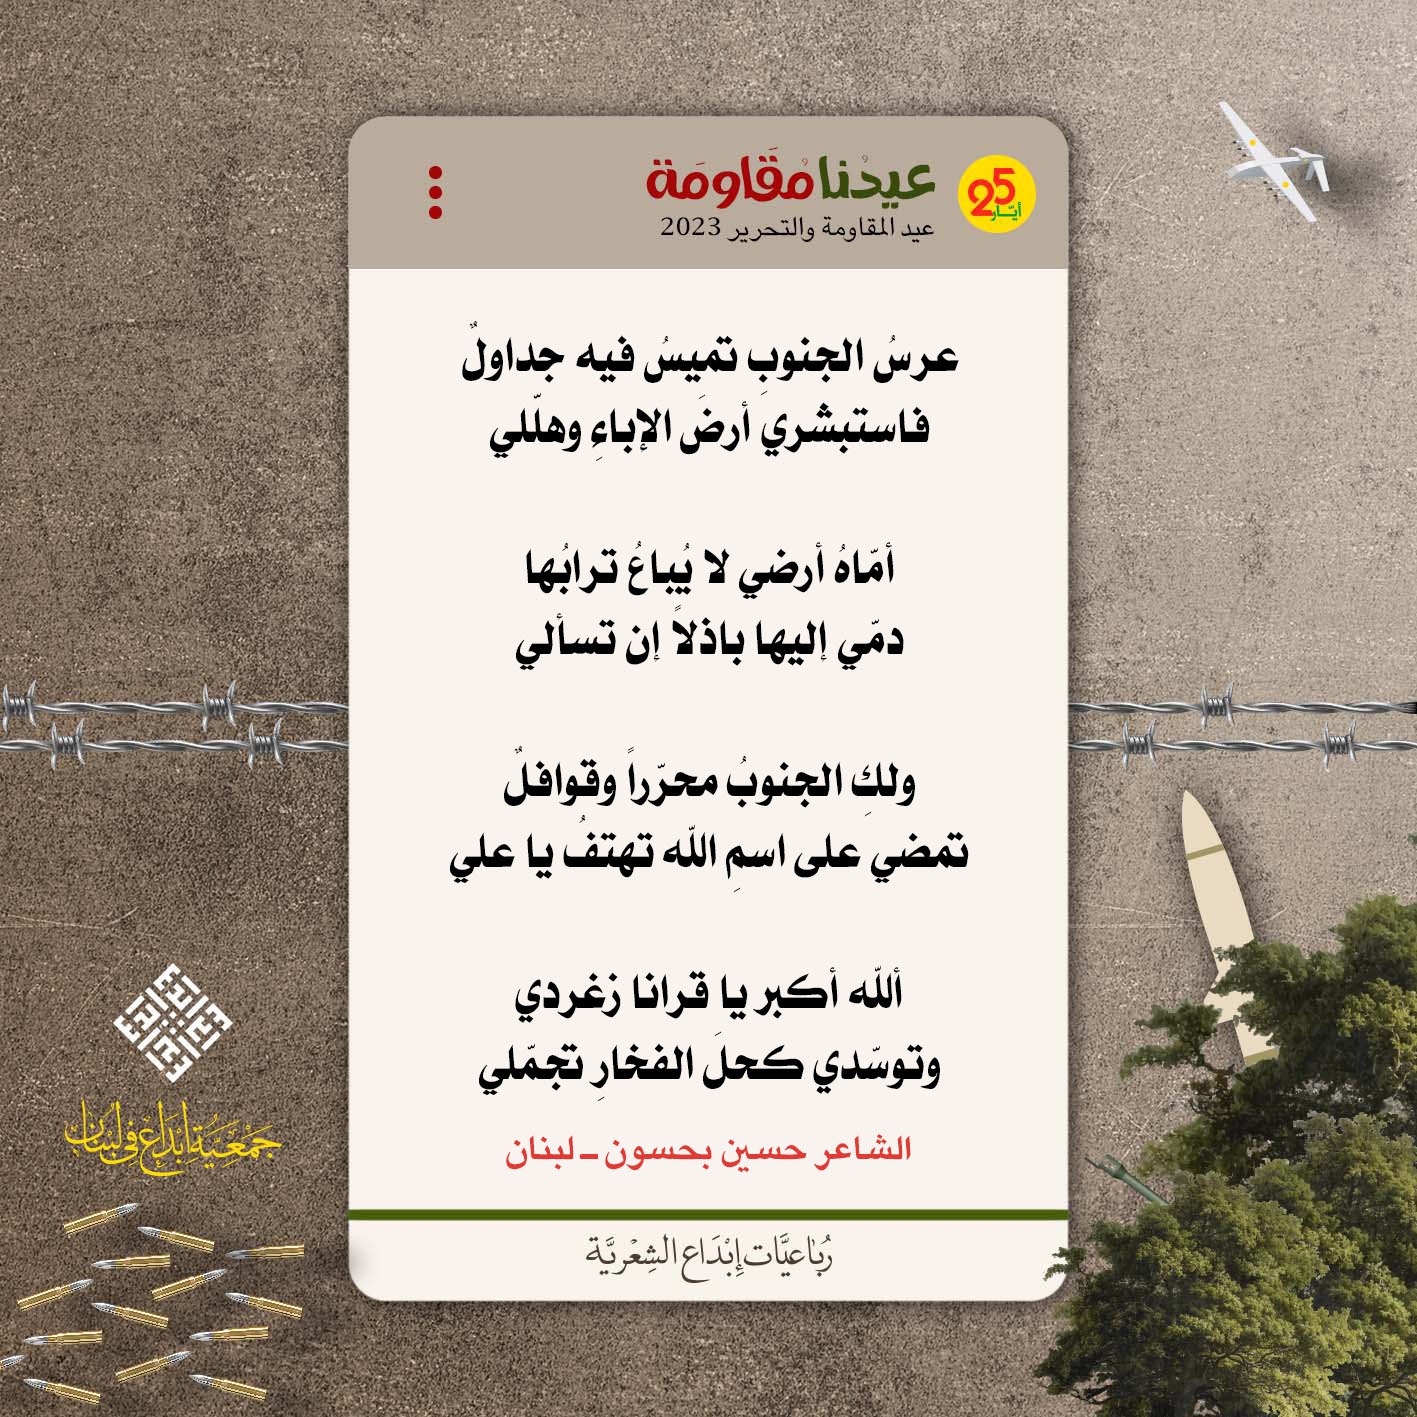 عيدُنا مُقَاومَة
25
أيّار
عيد المقاومة والتحرير 2023
عرسُ الجنوبِ تميسُ فيه جداولٌ
فاستبشري أرضَ الإباءِ وهلّلي
أمّاهُ أرضي لا يُباعُ ترابُها
دمّي إليها باذلاً إن تسألي
ولكِ الجنوبُ محرّراً وقوافلٌ
تمضي على اسمِ اللّه تهتفُ يا علي
أللّه أكبر يا قرانا زغردي
وتوسّدي كحلَ الفخارِ تجمّلي
الشاعر حسين بحسون - لبنان
جَمْعِيَّةُ إبْدَاع فِي لُبْنَان
رُبَاعيَّات إِبْدَاع الشِعْريَّة